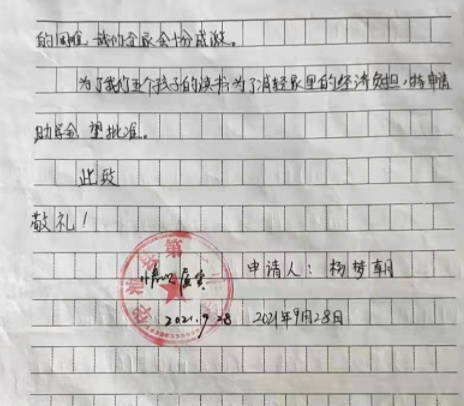 的困难,我们全家会十分感激。
为了我们五个孩子的读书,为了减轻家里的经济负担,特申请
助学金,望批准。
此致
敬礼!
情况属实
申请人:杨梦朝
2021.9.28
2021年9月28日